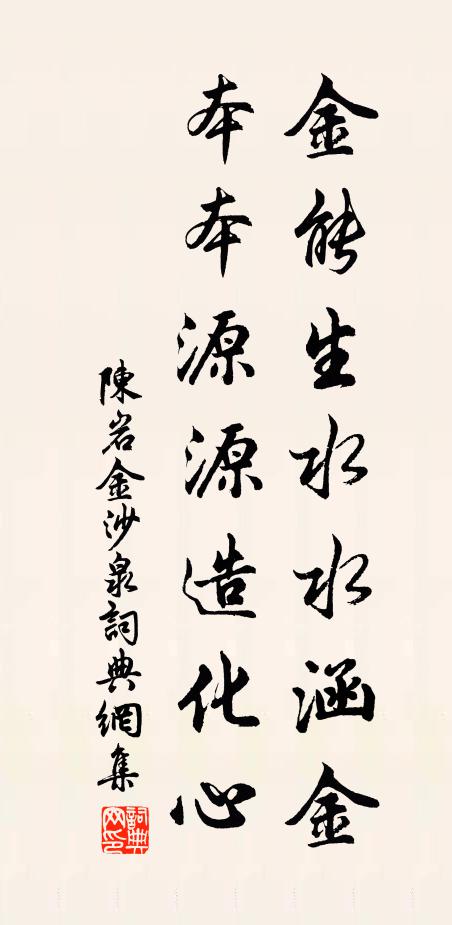 金能生水水涵金
本本源源造化心
陳岩金沙泉詞典網集
詞典网印